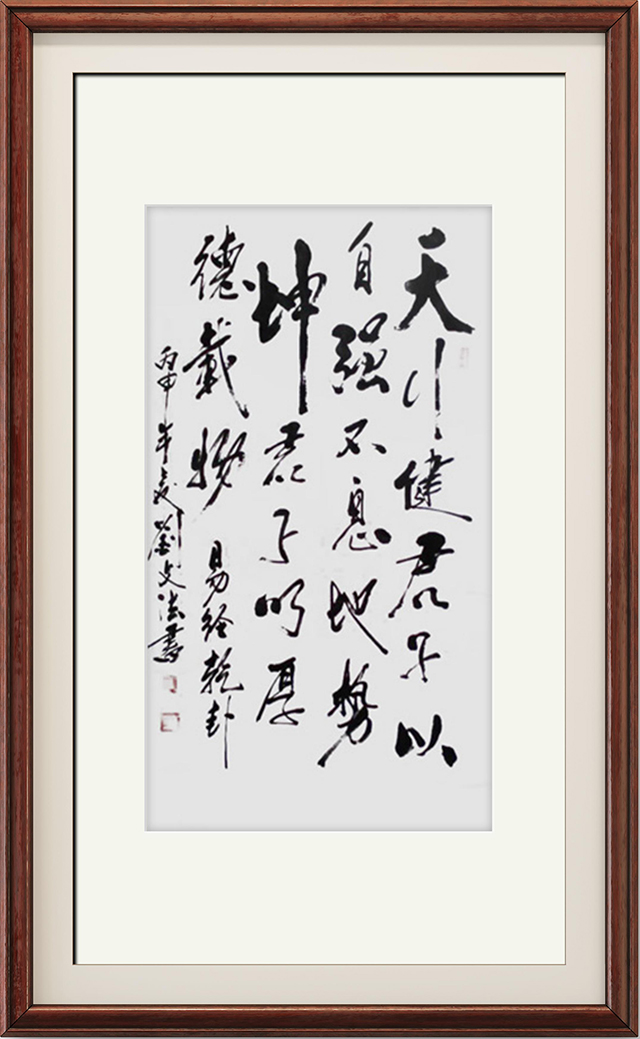 天行健君子以
自強不息地勢
坤君子以厚
德載物 易经乾卦
丙申年夏劉文法書